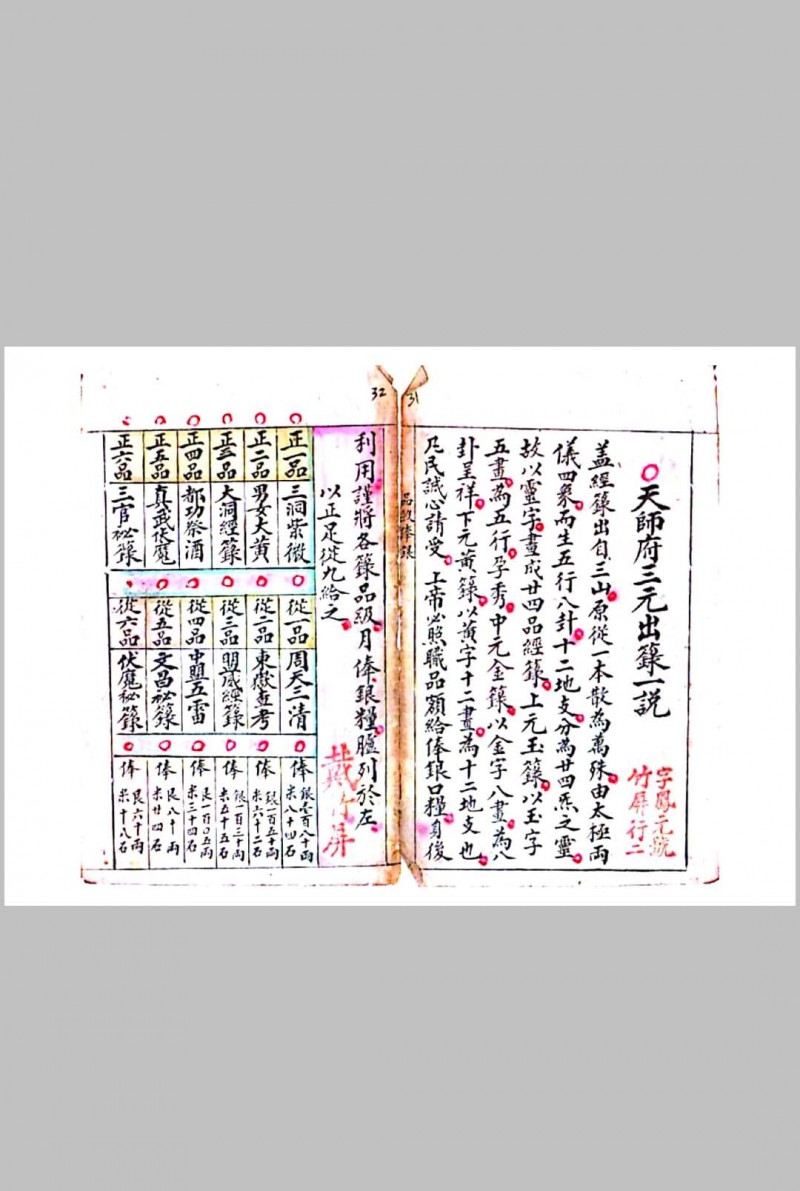 31
天師府三元出籙一説
字鳳元號
竹屏行二
蓋經籙出自三山原從一本散為萬殊由太極兩
儀四象而生五行八卦十二地支分為廿四炁之靈
故以靈字畫成廿四品經籙上元玉籙以玉字
五畫為五行孕秀中元金籙以金字八畫為八
卦呈祥下元黃籙以黃字十二畫為十二地支也
凡民誠心請受上帝必照職品額給俸銀口糧身後
品級俸銀
32
利用謹將各籙品級月俸銀糧臚列於左
以正足從九給之
戴竹屏
正一品 三洞紫微
從一品 周天三清
俸 銀壹百八十両
米八十四石
正二品 男女大黃
從二品 東嶽
考
俸 銀一百五十両
米六十二石
正三品 大洞經籙
從三品 盟威經籙
俸 銀一百三十両
米五十五石
正四品 都功祭酒
從四品 中盟五雷
俸 艮一百〇五両
米三十四石
正五品 真武伏魔
從五品 文昌祕籙
俸 艮八十両
米廿四石
正六品 三官祕籙
從六品 伏魔祕籙
俸 艮六十両
米十八石